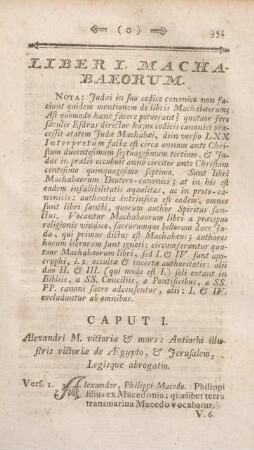 ( o ) 351
LIBER I. MACHA-
BAEORUM.
NOTA: Judæi in suo codice canonico non fa-
ciunt quidem mentionem de libris Machabæorum;
Ast quomodo hanc facere potuerant? quatuor fere
sæculis Esdras director hujus codicis canonici præ-
cessit ætatem Judæ Machabæi, dein versio LXX
Interpretum facta est circa annum ante Christum
ducentesimum septuagesimum tertium, & Ju-
das in prælio occubuit anno circiter ante Christum
centesimo quinquagesimo septimo. Sunt libri
Machabæorum Deutero-canonici; at in his est
eadem infallibilitatis æqualitas, ac in proto-ca-
nonicis; authentia intrinseca est eadem, omnes
sunt libri sancti, quorum author Spiritus San-
ctus. Vocantur Machabæorum libri a præcipuo
religionis vindice, sacrorumque bellorum duce Ju-
da, qui primus dictus est Machabæus; authores
horum librorum sunt ignoti; circumferuntur qua-
tuor Machabæorum libri, sed I. & IV. sunt apo-
cryphi, i. e. occulta & incerta authoritatis: alii
duo II. & III. (qui modo est I.) soli extant in
Bibliis, a SS. Conciliis, a Pontificibus, a SS.
PP. canoni sacro adcensentur, alii: I. & IV.
excluduntur ab omnibus.
CAPUT I.
Alexandri M. victoriæ & mors: Antiochi illu-
stris victoriæ de Ægypto, & Jerusalem,
Legisque abrogatio.
Vers. 1. Alexander, Philippi Macedo. Philippi
filius ex Macedonia; quælibet terra
transmarina Macedo vocabatur.
V. 6.